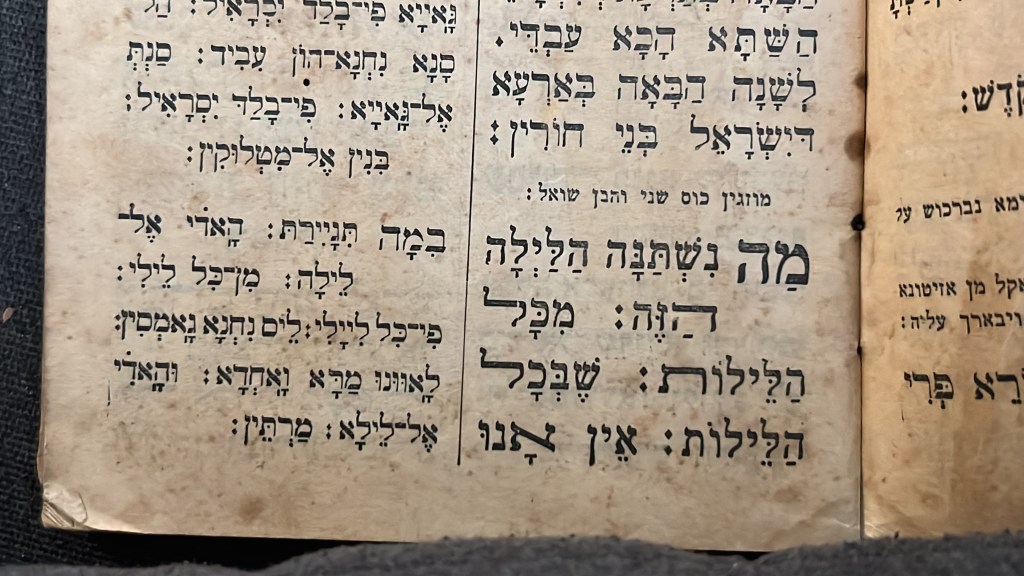 הַשַּׁתָּא הָכָא עַבְדֵי.
לְשָׁנָה הַבָּאָה בְּאַרְעָא
דְיִשְׂרָאֵל בְּנֵי חוֹרִין:
מוזגין כוס שני והבן שואל:
מַה נִשְׁתַּנָּה הַלַּיְלָה
הַזֶּה: מִכָּל
הַלֵּילוֹת: שֶׁבְּכָל
הַלֵּילוֹת: אֵין אָנוּ
גָּאיֵיא פִי־בָלַד יִסְרָאִיל:
סָנָא נִחְנָא־הוֹן עָבִיד: סִנְתְּ
אֶל־גָּאיֵיא: פִי־בָלַד יִסְרָאִיל:
בְּנִין אֶל־מִטְלוּקִין:
בִמָה תְּגִיֵירַת: הָאדִׄי אֶל־
לֵילָה: מִן־כִּל לִילִי:
פִי־כִּל לִיָילִי: לֵיס נִחְנָא גָאמְסִין:
לָאוּונוּ מַרָּא וָאְחְדָא: וּהָאדִׄי
אֶל־לֵילָא: מַרְתֵּין:
קֹדֶשׁ:
נברכוש על
אקל מן אזיטונא
ויבארך עליה:
פְּרִי